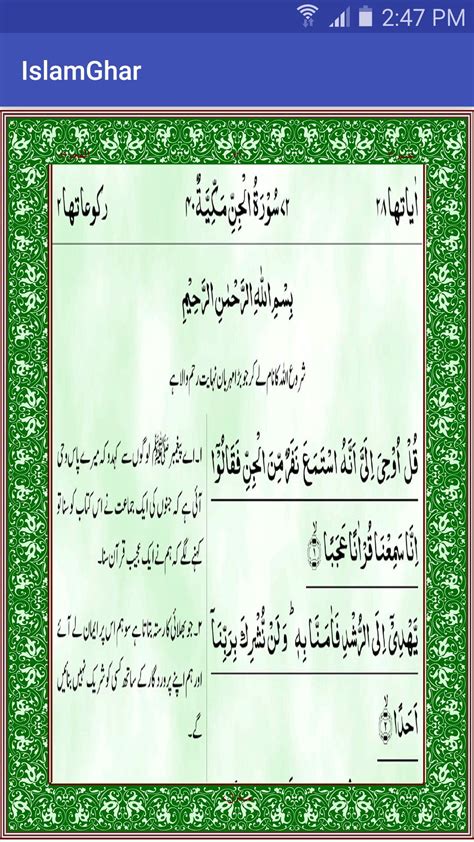 2:47 PM
IslamGhar
اٰیاتھا ۲۸ ۷۲ سُوْرَةُ الْجِنِّ مَكِّيَّةٌ ۴۰ رکوعاتھا ۲
بِسْمِ اللهِ الرَّحْمٰنِ الرَّحِيْمِ
شروع اللہ کا نام لے کر جو بڑا مہربان نہایت رحم والا ہے
قُلْ اُوْحِیَ اِلَیَّ اَنَّهُ اسْتَمَعَ نَفَرٌ مِّنَ الْجِنِّ فَقَالُوْۤا
اِنَّا سَمِعْنَا قُرْاٰنًا عَجَبًا ۱
۱۔ اے پیغمبر ﷺ لوگوں سے کہہ دو کہ میرے پاس وحی
آئی ہے کہ جنوں کی ایک جماعت نے اس کتاب کو سنا تو
کہنے لگے کہ ہم نے ایک عجیب قرآن سنا۔
یَّهْدِیْۤ اِلَی الرُّشْدِ فَاٰمَنَّا بِهٖ ؕ وَلَنْ نُّشْرِكَ بِرَبِّنَاۤ
اَحَدًا ۲
۲۔ جو بھلائی کا رستہ بتاتا ہے سو ہم اس پر ایمان لے آئے
اور ہم اپنے پروردگار کے ساتھ کسی کو شریک نہیں بنائیں
گے۔